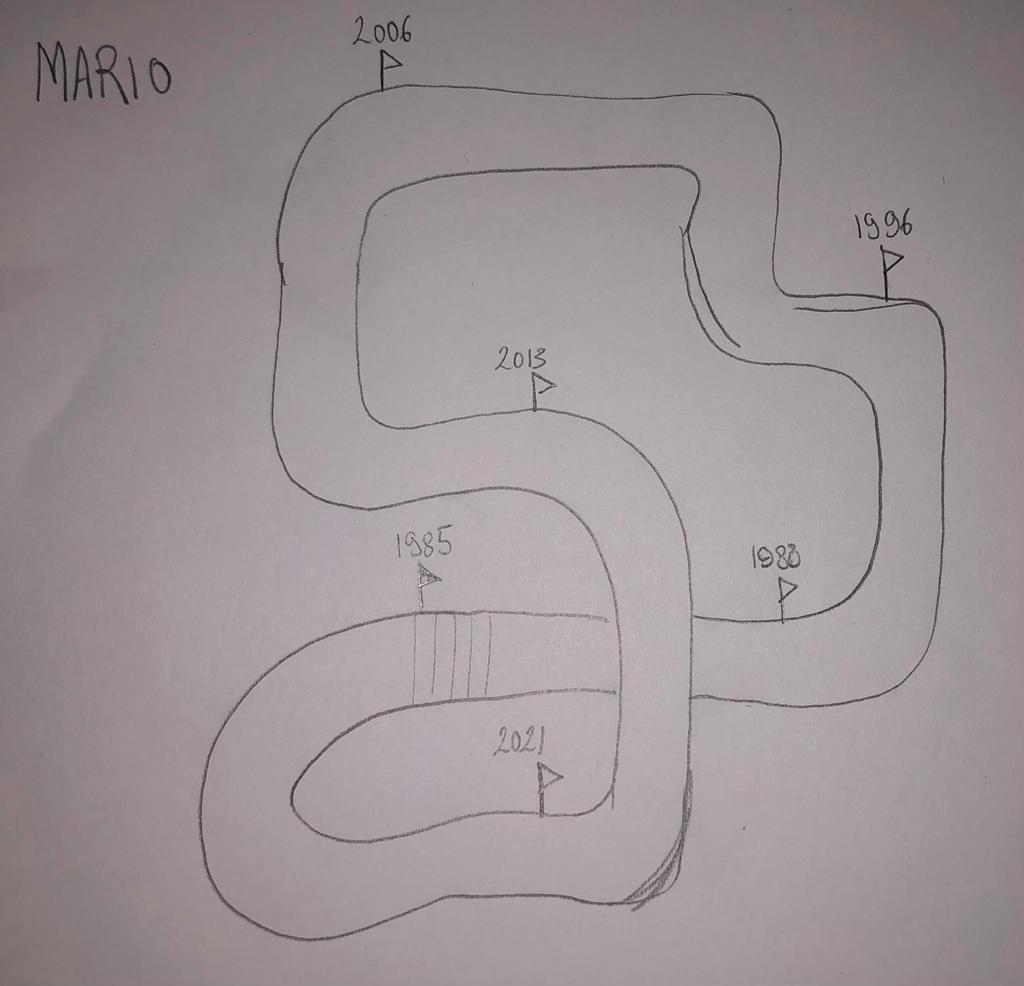 MARIO
2006
1996
2013
1985
1988
2021